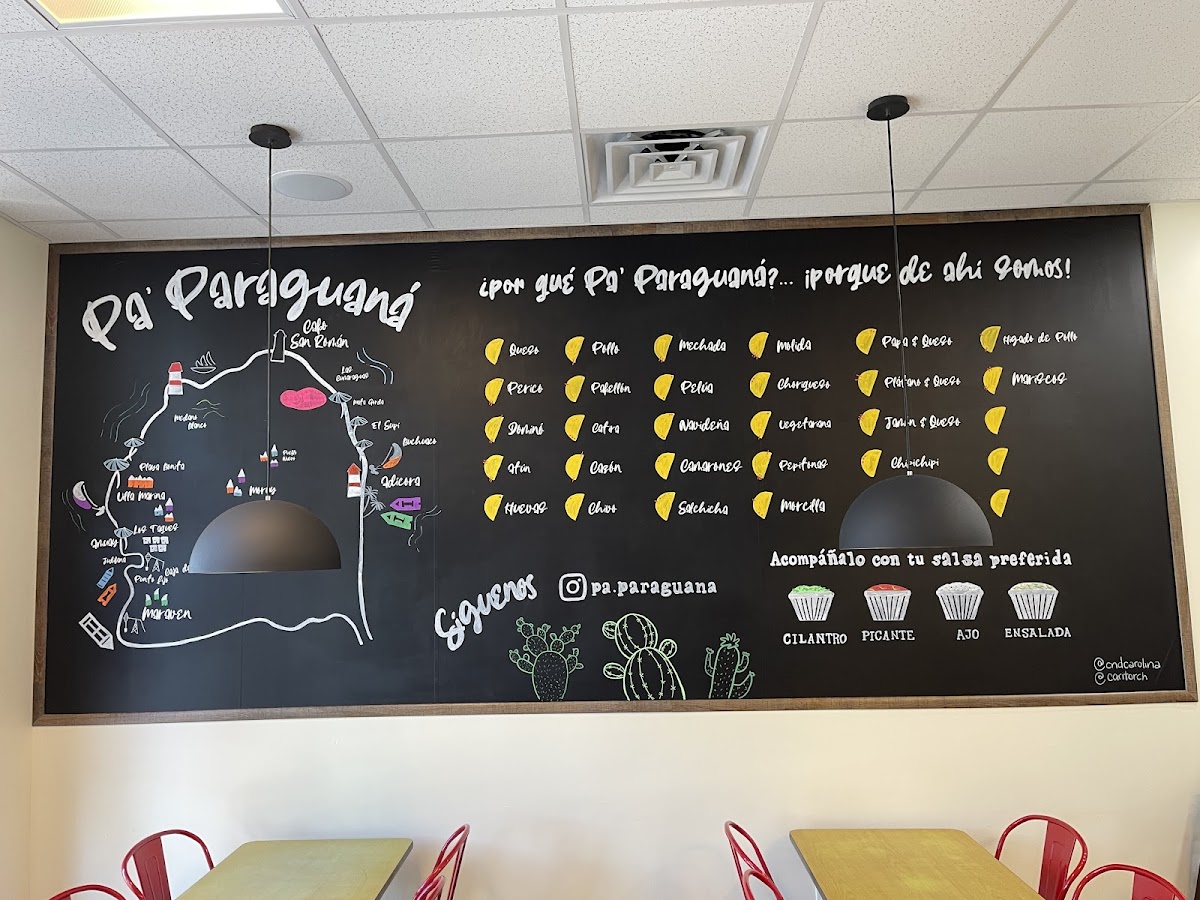 Pa' Paraguaná
Cabo
San Román
Las
Cumaraguas
Mata Gorda
Médano
Blanco
El Supí
Buchuaco
Playa Bonita
Pueblo
Nuevo
Villa Marina
Moruy
Adícora
Los Taques
Amuay
Judibana
Punto Fijo
Maraven
¿por qué Pa' Paraguaná?... ¡porque de ahí Somos!
Queso
Pollo
Mechada
Molida
Papa & Queso
Hígado de Pollo
Perico
Pabellón
Pelúa
Chorqueso
Plátano & Queso
Mariscos
Dominó
Catra
Navideña
Vegetariana
Jamón & Queso
Atún
Cazón
Camarones
Pepitonas
Chipichipi
Huevas
Chivo
Salchicha
Morcilla
Síguenos
pa.paraguana
Acompáñalo con tu salsa preferida
CILANTRO
PICANTE
AJO
ENSALADA
@cndcarolina
@caritorch